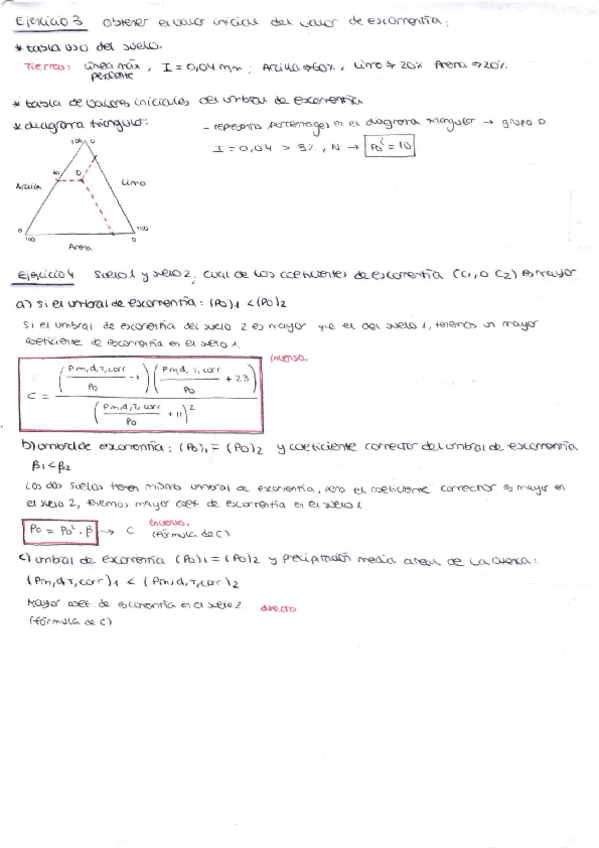 Ejercicio 3 Obtener el valor inicial del valor de escorrentía:
* tabla uso del suelo.
Tierras: Línea máx pendiente, I = 0,04 mm; Arcilla ⇒ 60%, Limo ⇒ 20% Arena ⇒ 20%.
* tabla de valores iniciales del umbral de escorrentía
* diagrama triángulo:
- representa porcentajes en el diagrama triangular → grupo D
I = 0,04 > 3%, N → Po^i = 10
100 0
60
D
Arcilla
Limo
0 100
100 0
Arena
Ejercicio 4 Suelo 1 y suelo 2, cual de los coeficientes de escorrentía (C1, o C2) es mayor
a) Si el umbral de escorrentía: (Po)1 < (Po)2
Si el umbral de escorrentía del suelo 2 es mayor que el del suelo 1, tenemos un mayor
coeficiente de escorrentía en el suelo 1.
Inverso.
C = ((Pm,d,T,corr / Po) - 1) ((Pm,d,T,corr / Po) + 23) / ((Pm,d,T,corr / Po) + 11)^2
b) umbral de escorrentía: (Po)1 = (Po)2 y coeficiente corrector del umbral de escorrentía
β1 < β2
Los dos suelos tienen mismo umbral de escorrentía, pero el coeficiente corrector es mayor en
el suelo 2, tenemos mayor coef de escorrentía en el suelo 1.
Po = Po^i · β → C Inverso. (fórmula de C)
c) umbral de escorrentía (Po)1 = (Po)2 y precipitación media areal de la cuenca:
(Pm,d,T,corr)1 < (Pm,d,T,corr)2
Mayor coef. de escorrentía en el suelo 2 directo
(fórmula de C)